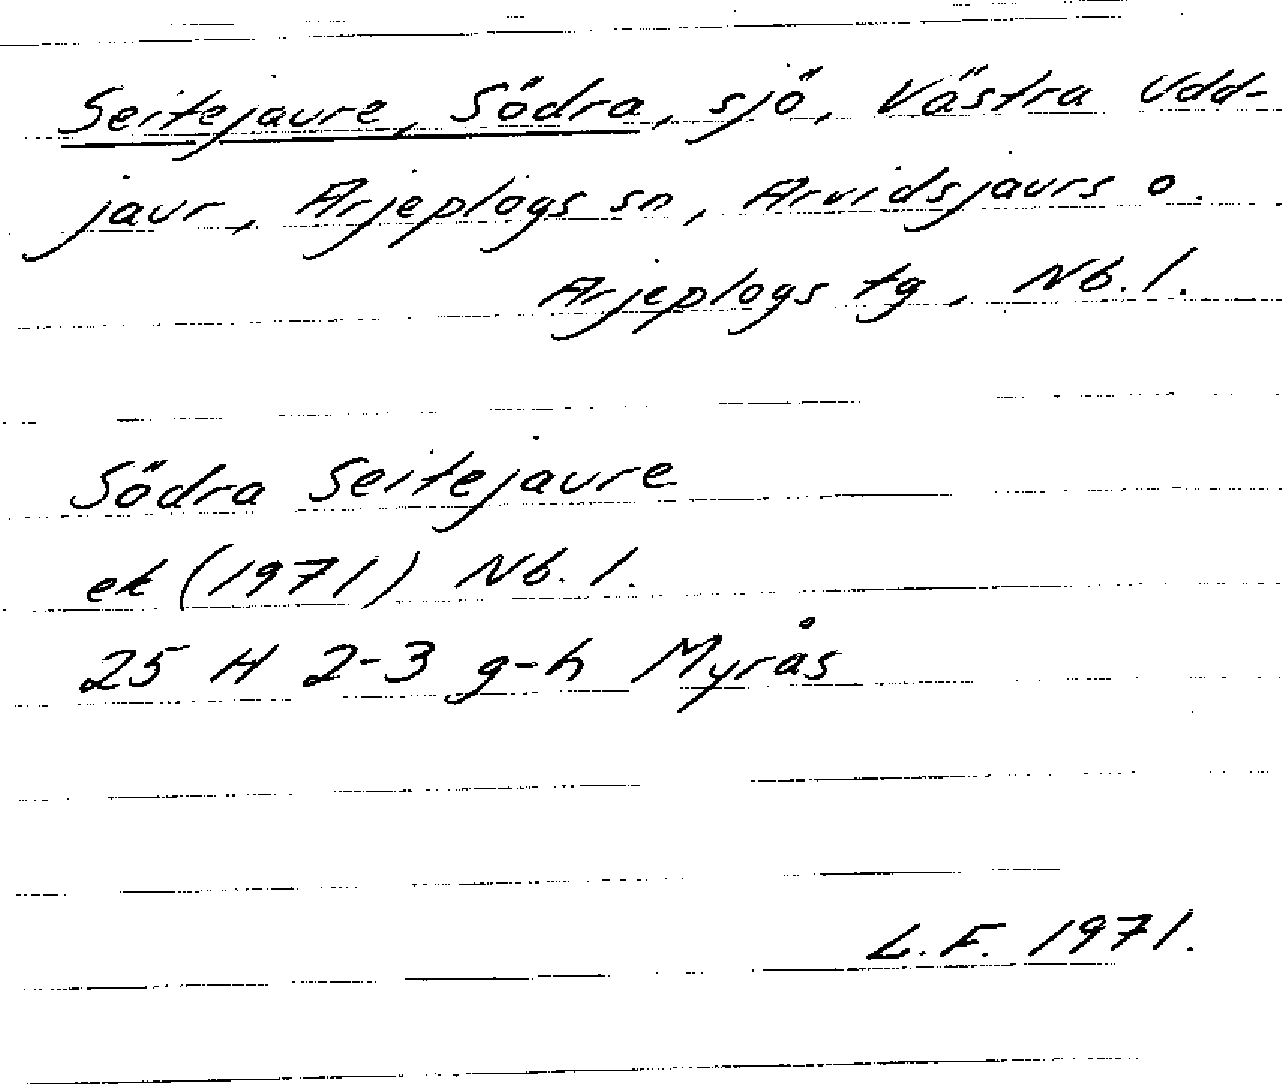 Seitejaure, Södra, sjö, Västra Udd-
jaur, Arjeplogs sn, Arvidsjaurs o.
Arjeplogs tg, Nb. l.
Södra Seitejaure
ek (1971) Nb. l.
25 H 2-3 g-h Myrås
L. F. 1971.